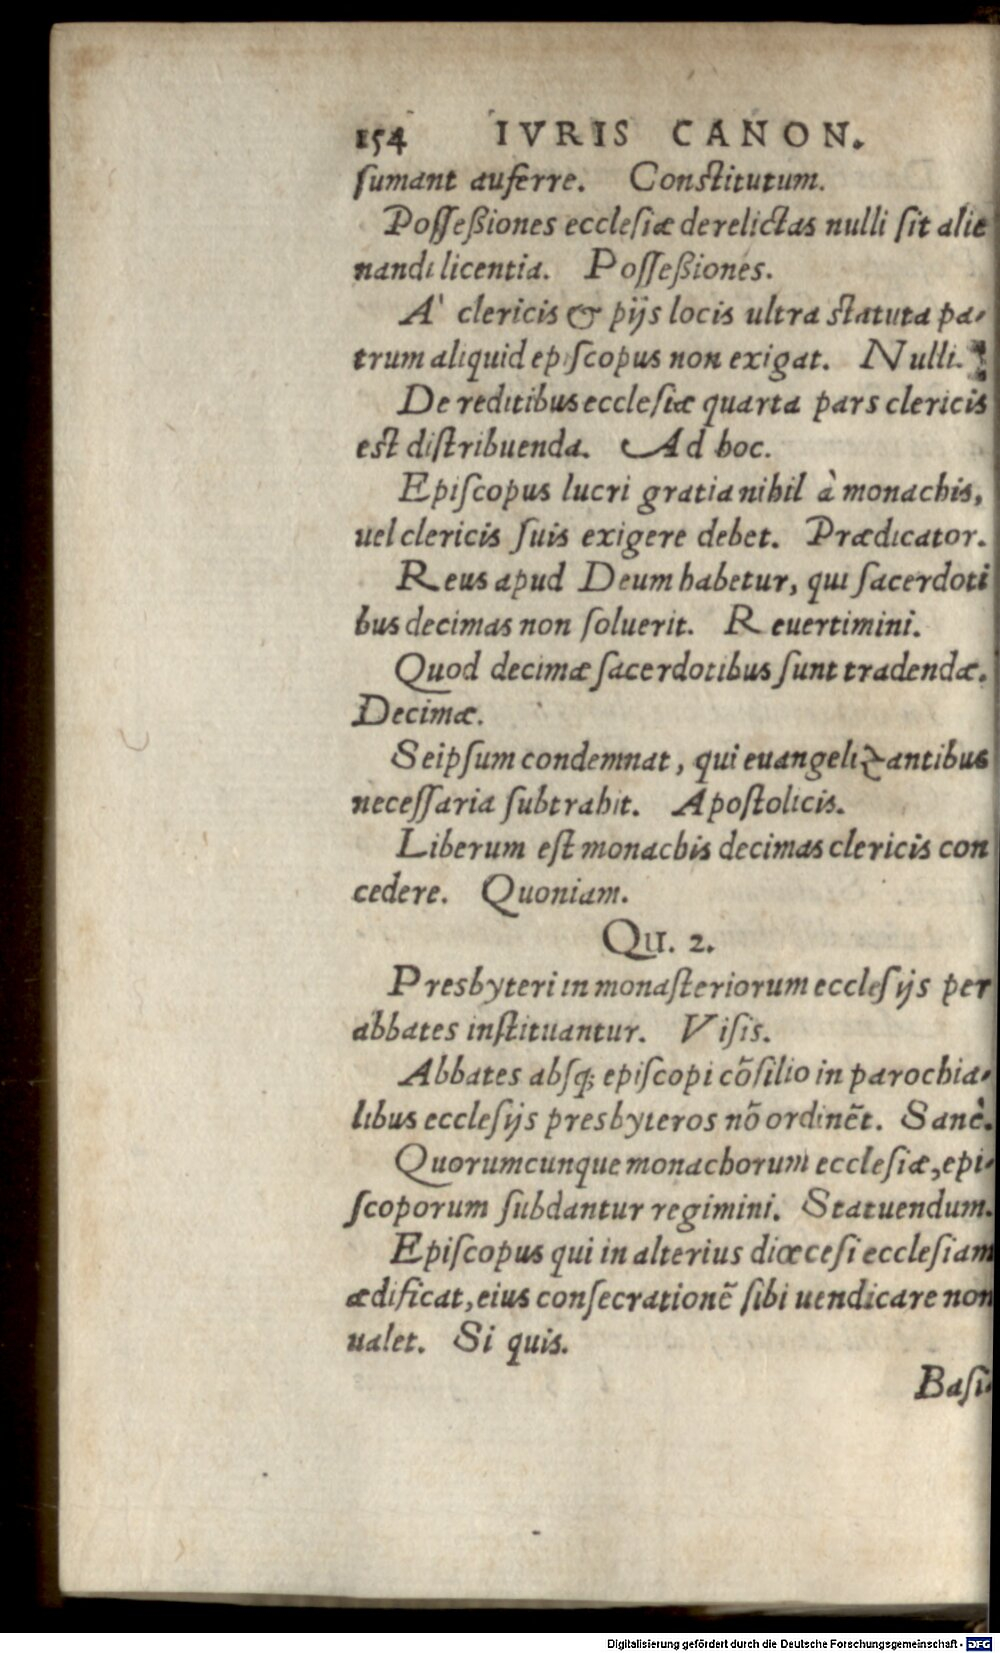 154 IVRIS CANON.
ſumant auferre. Conſtitutum.
Poſſeßiones eccleſiæ derelictas nulli ſit alie
nandi licentia. Poſſeßiones.
A' clericis & pijs locis ultra ſtatuta pa-
trum aliquid epiſcopus non exigat. Nulli.
De reditibus eccleſiæ quarta pars clericis
eſt diſtribuenda. Ad hoc.
Epiſcopus lucri gratia nihil à monachis,
uel clericis ſuis exigere debet. Prædicator.
Reus apud Deum habetur, qui ſacerdoti
bus decimas non ſoluerit. Reuertimini.
Quod decimæ ſacerdotibus ſunt tradendæ.
Decimæ.
Seipſum condemnat, qui euangelizantibus
neceſſaria ſubtrahit. Apoſtolicis.
Liberum eſt monachis decimas clericis con
cedere. Quoniam.
QU. 2.
Presbyteri in monaſteriorum eccleſijs per
abbates inſtituantur. Viſis.
Abbates abſq; epiſcopi cõſilio in parochia-
libus eccleſijs presbyteros nõ ordinẽt. Sanè.
Quorumcunque monachorum eccleſiæ, epi-
ſcoporum ſubdantur regimini. Statuendum.
Epiſcopus qui in alterius diœceſi eccleſiam
ædificat, eius conſecrationẽ ſibi uendicare non
ualet. Si quis.
Baſi-
Digitalisierung gefördert durch die Deutsche Forschungsgemeinschaft - DFG